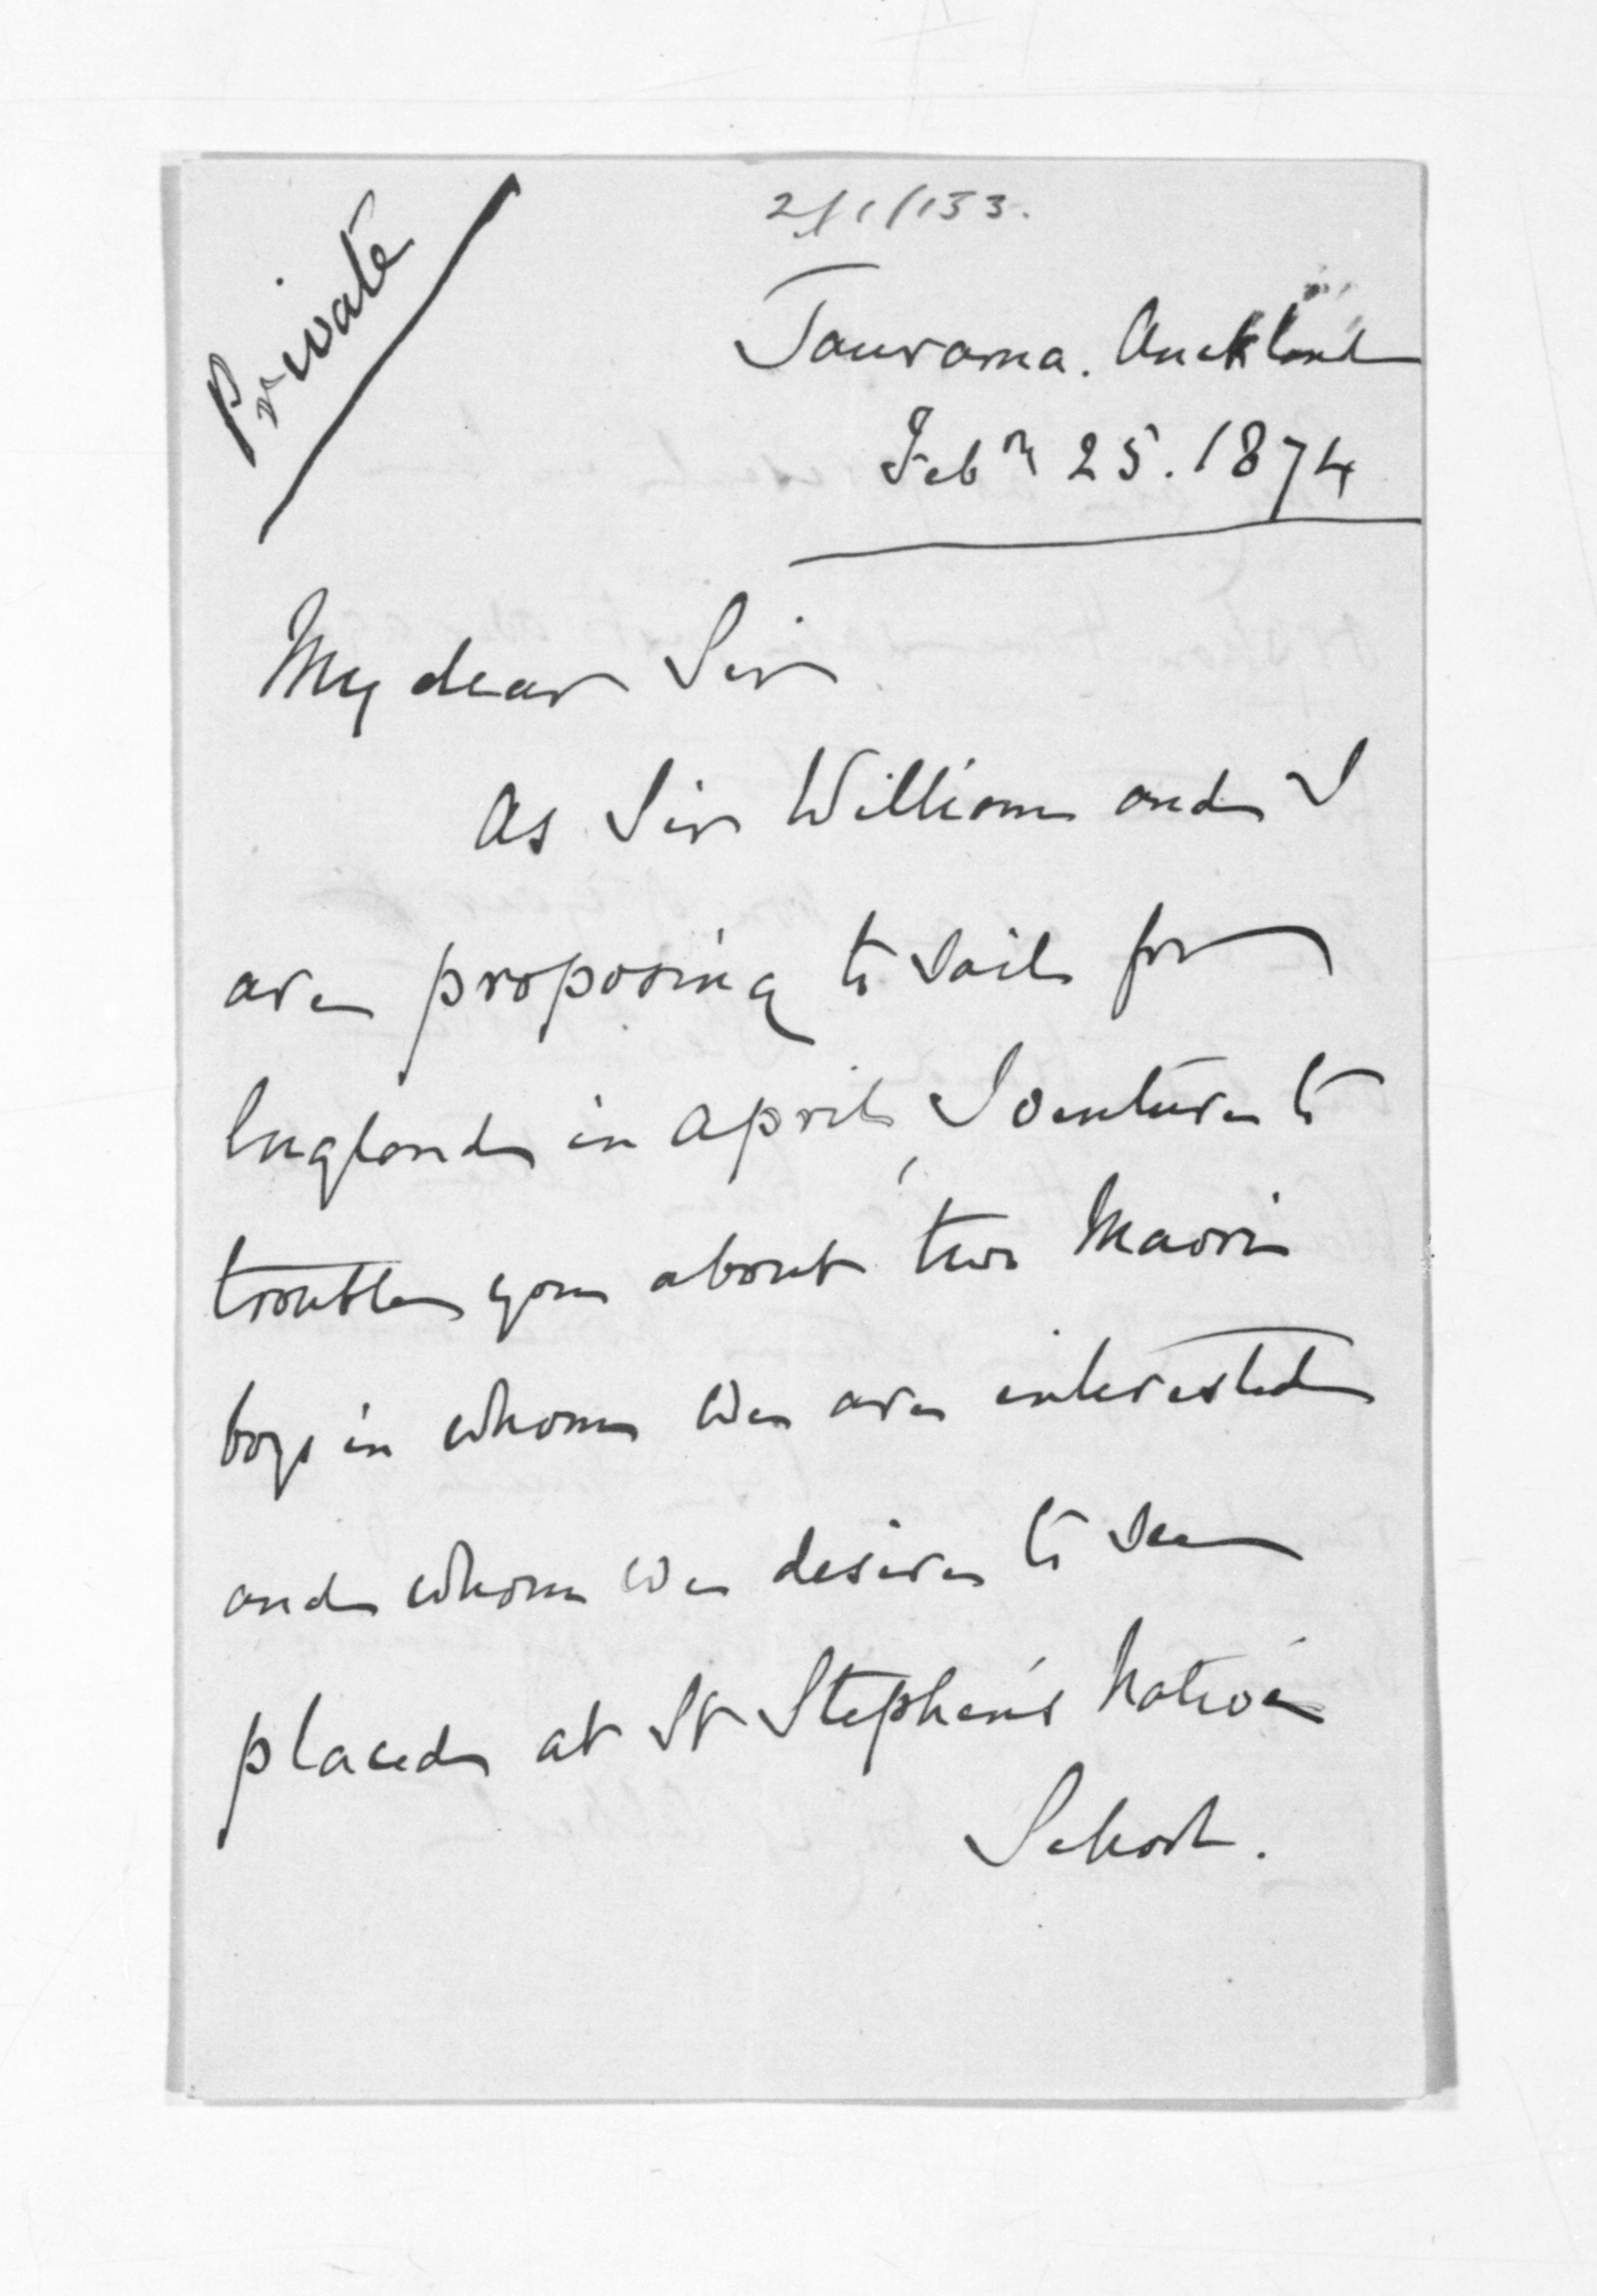 Private
2/1/133.
Taurarua. Auckland
Feby 25. 1874
My dear Sir
As Sir William and I
are proposing to sail for
England in April, I venture to
trouble you about two Maori
boys in whom we are interested
and whom we desire to see
placed at St Stephen's Native
School.